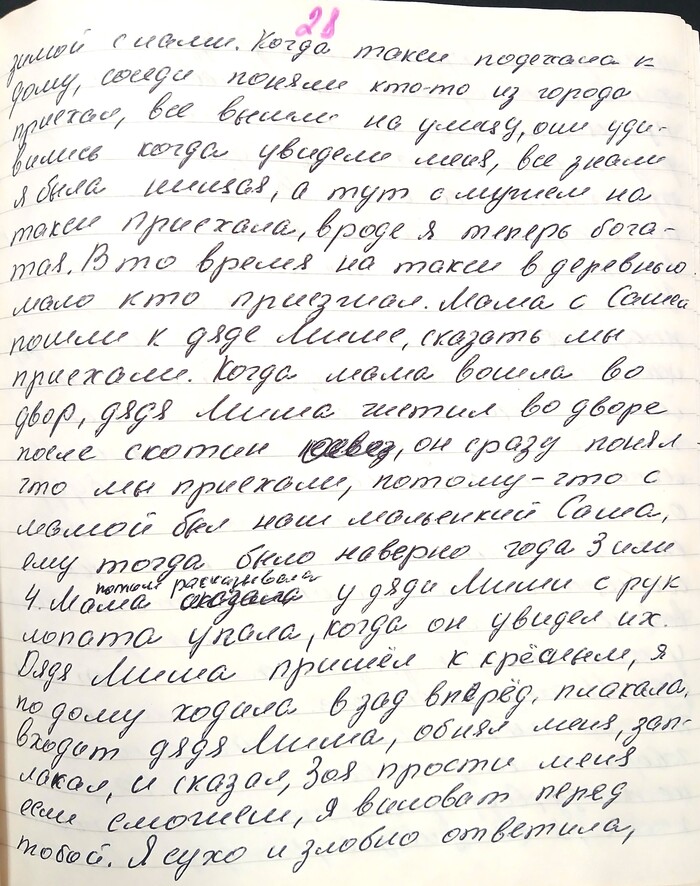 28
зимой с нами. Когда такси подехала к
дому, соседи поняли кто-то из города
приехал, все вышли на улицу, они уди-
вились когда увидели меня, все знали
я была нищая, а тут с мужем на
такси приехала, вроде я теперь бога-
тая. В то время на такси в деревню
мало кто приезжал. Мама с Сашей
пошли к дяде Мише, сказать мы
приехали. Когда мама вошла во
двор, дядя Миша чистил во дворе
после скотин, он сразу понял
что мы приехали, потому-что с
мамой был наш маленький Саша,
ему тогда было наверно года 3 или
4. Мама потом рассказывала у дяди Миши с рук
лопата упала, когда он увидел их.
Дядя Миша пришёл к крёсным, я
по дому ходила в зад вперёд, плакала,
входит дядя Миша, обнял меня, зап-
лакал, и сказал, Зоя прости меня
если сможешь, я виноват перед
тобой. Я сухо и злобно ответила,